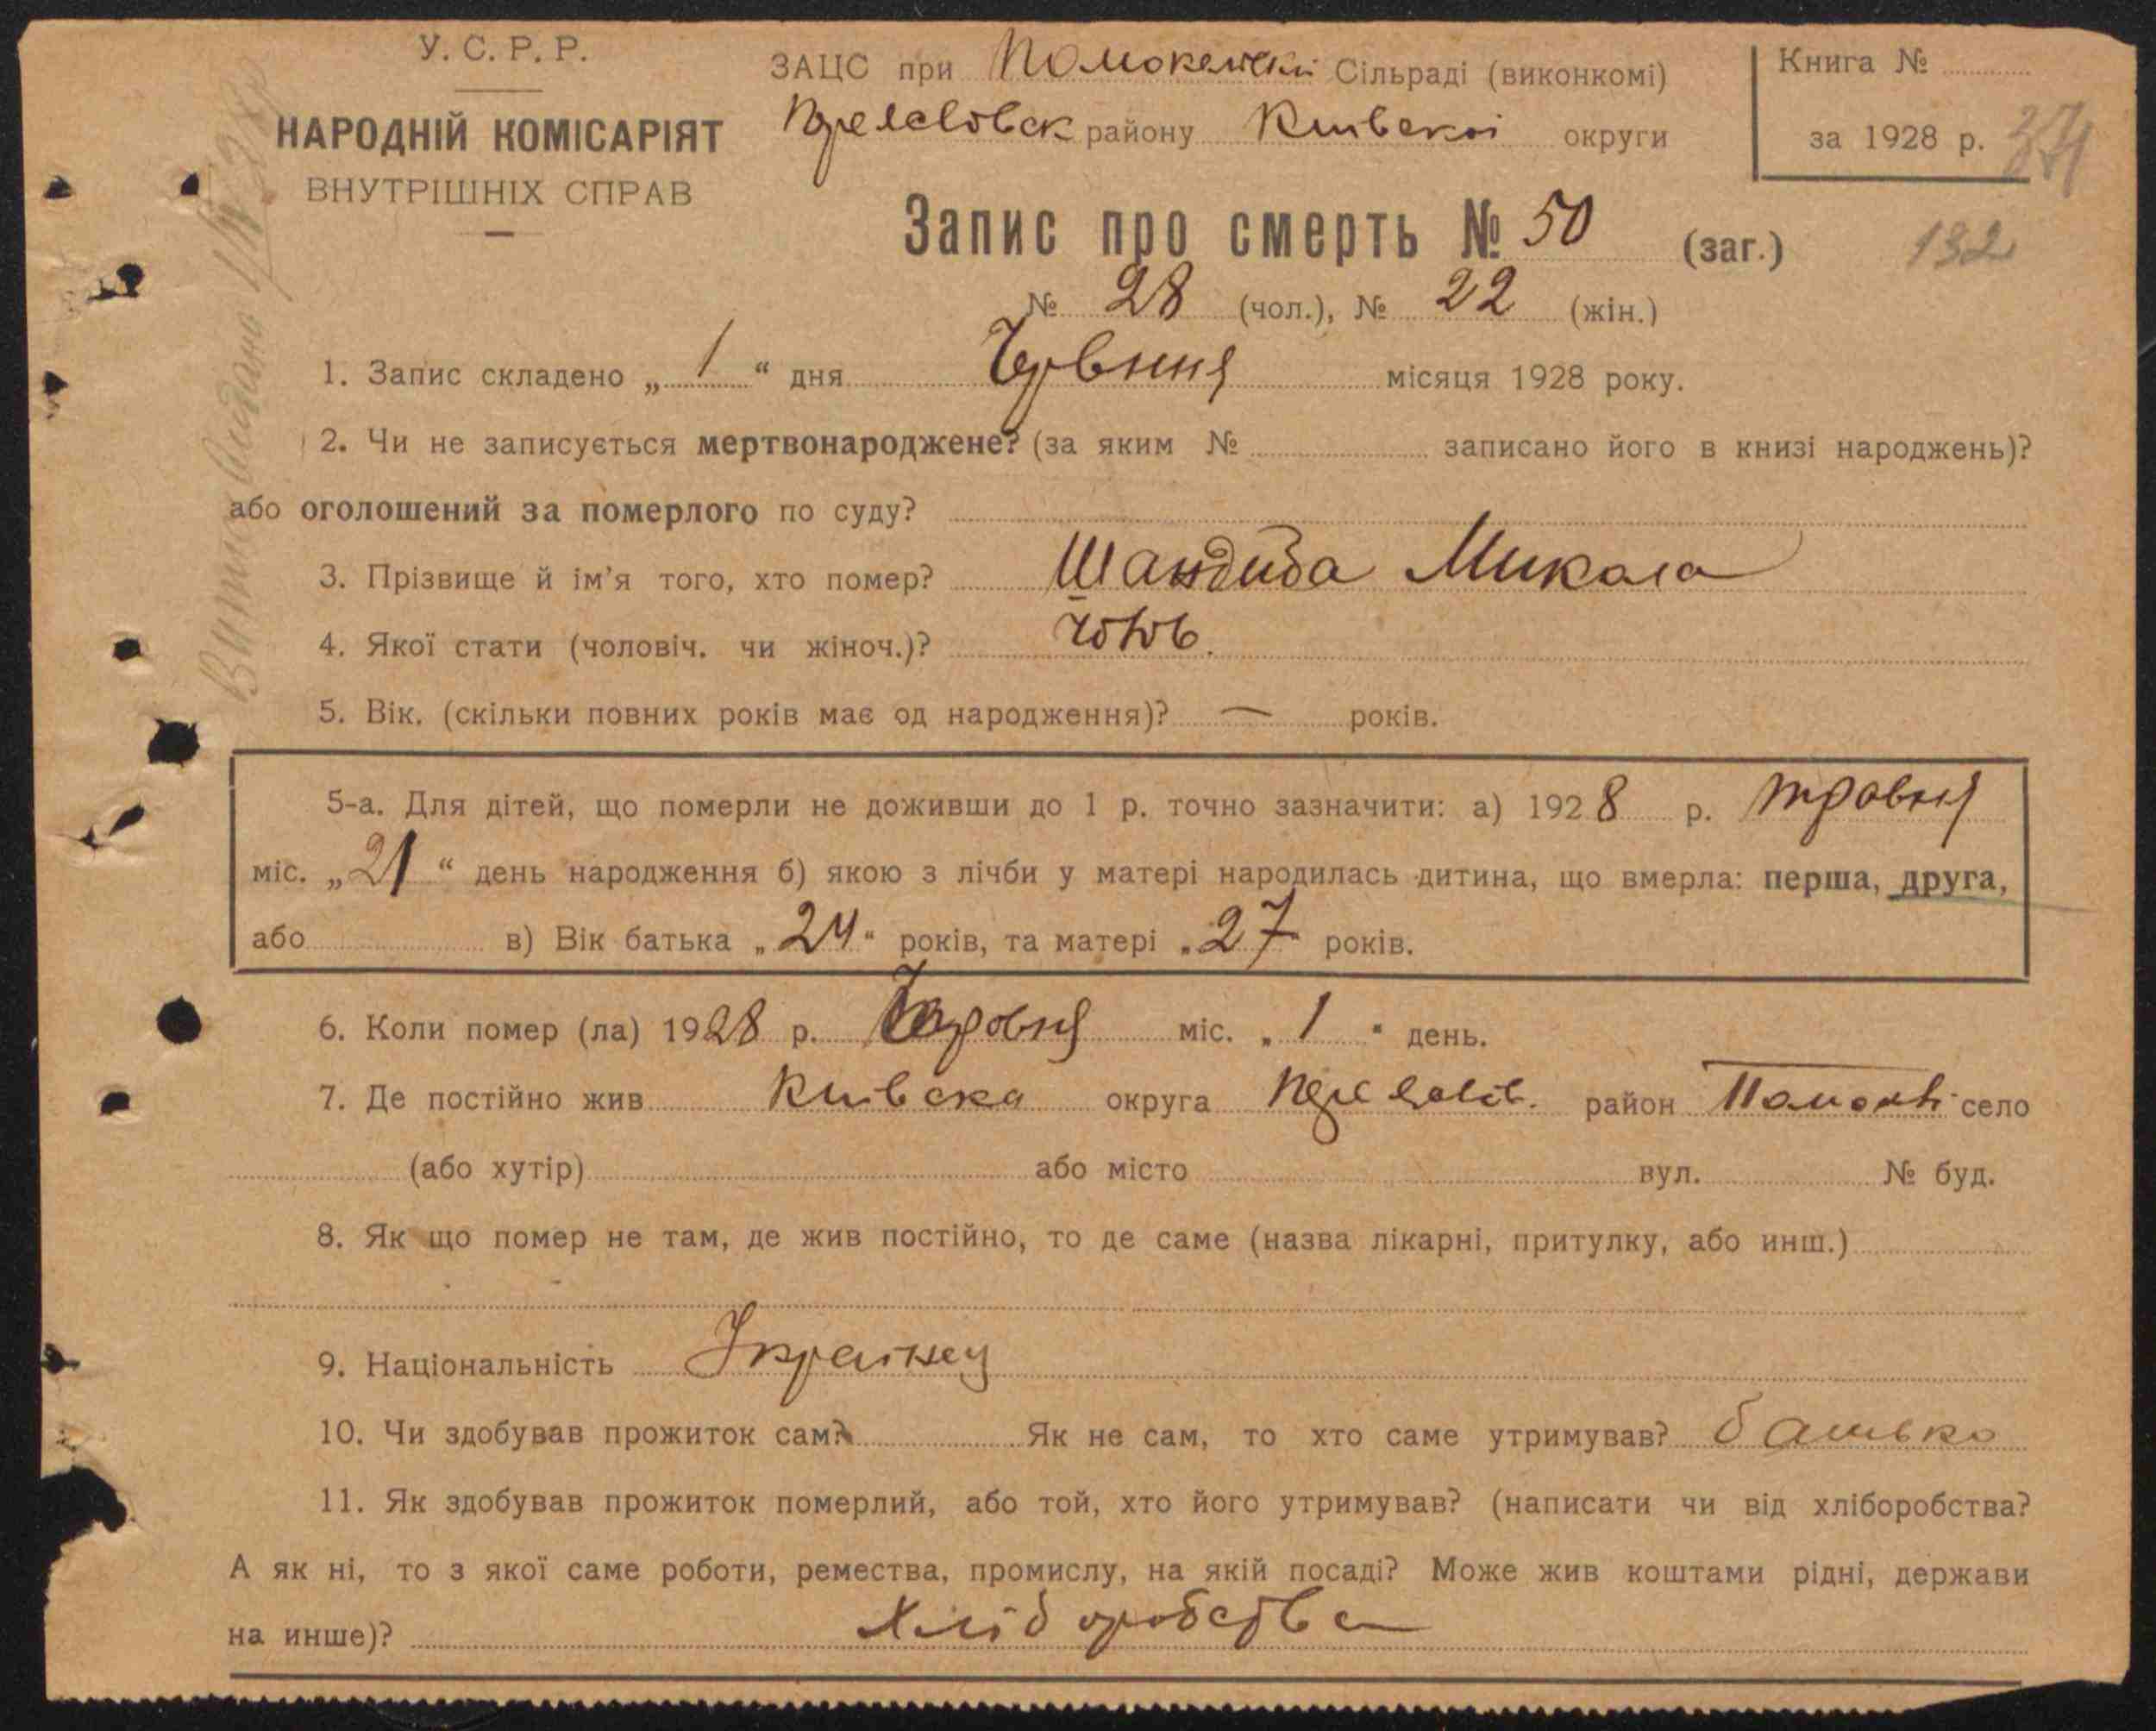 У. С. Р. Р.
НАРОДНІЙ КОМІСАРІЯТ
ВНУТРІШНІХ СПРАВ
ЗАЦС при Сільраді (виконкомі)
району Київскої округи
Книга №
за 1928 р.
Запис про смерть № 50 (заг.)
132
№ 28 (чол.), № 22 (жін.)
1. Запис складено „ 1 “ дня Червния місяця 1928 року.
2. Чи не записується мертвонароджене? (за яким № записано його в книзі народжень)?
або оголошений за померлого по суду?
3. Прізвище й ім'я того, хто помер? Шандиба Микола
4. Якої стати (чоловіч. чи жіноч.)? чолов.
5. Вік. (скільки повних років має од народження)? — років.
5-а. Для дітей, що померли не доживши до 1 р. точно зазначити: а) 1928 р. травня
міс. „21“ день народження б) якою з лічби у матері народилась дитина, що вмерла: перша, друга,
або в) Вік батька „24“ років, та матері „27 років.
6. Коли помер (ла) 1928 р. міс. „ 1 “ день.
7. Де постійно жив Київска округа район село
(або хутір) або місто вул. № буд.
8. Як що помер не там, де жив постійно, то де саме (назва лікарні, притулку, або инш.)
9. Національність Українец
10. Чи здобував прожиток сам? Як не сам, то хто саме утримував? батько
11. Як здобував прожиток померлий, або той, хто його утримував? (написати чи від хліборобства?
А як ні, то з якої саме роботи, ремества, промислу, на якій посаді? Може жив коштами рідні, держави
на инше)? Хліборобства